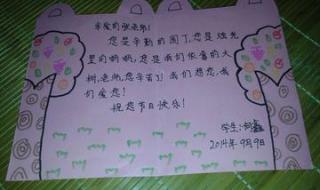 亲爱的张老师！
您是辛勤的园丁，您是烛光
里的妈妈，您是我们依靠的大
树，老师，您辛苦了！我们想您，我
们爱您！
祝您节日快乐！
学生：何鑫
2014年9月9日